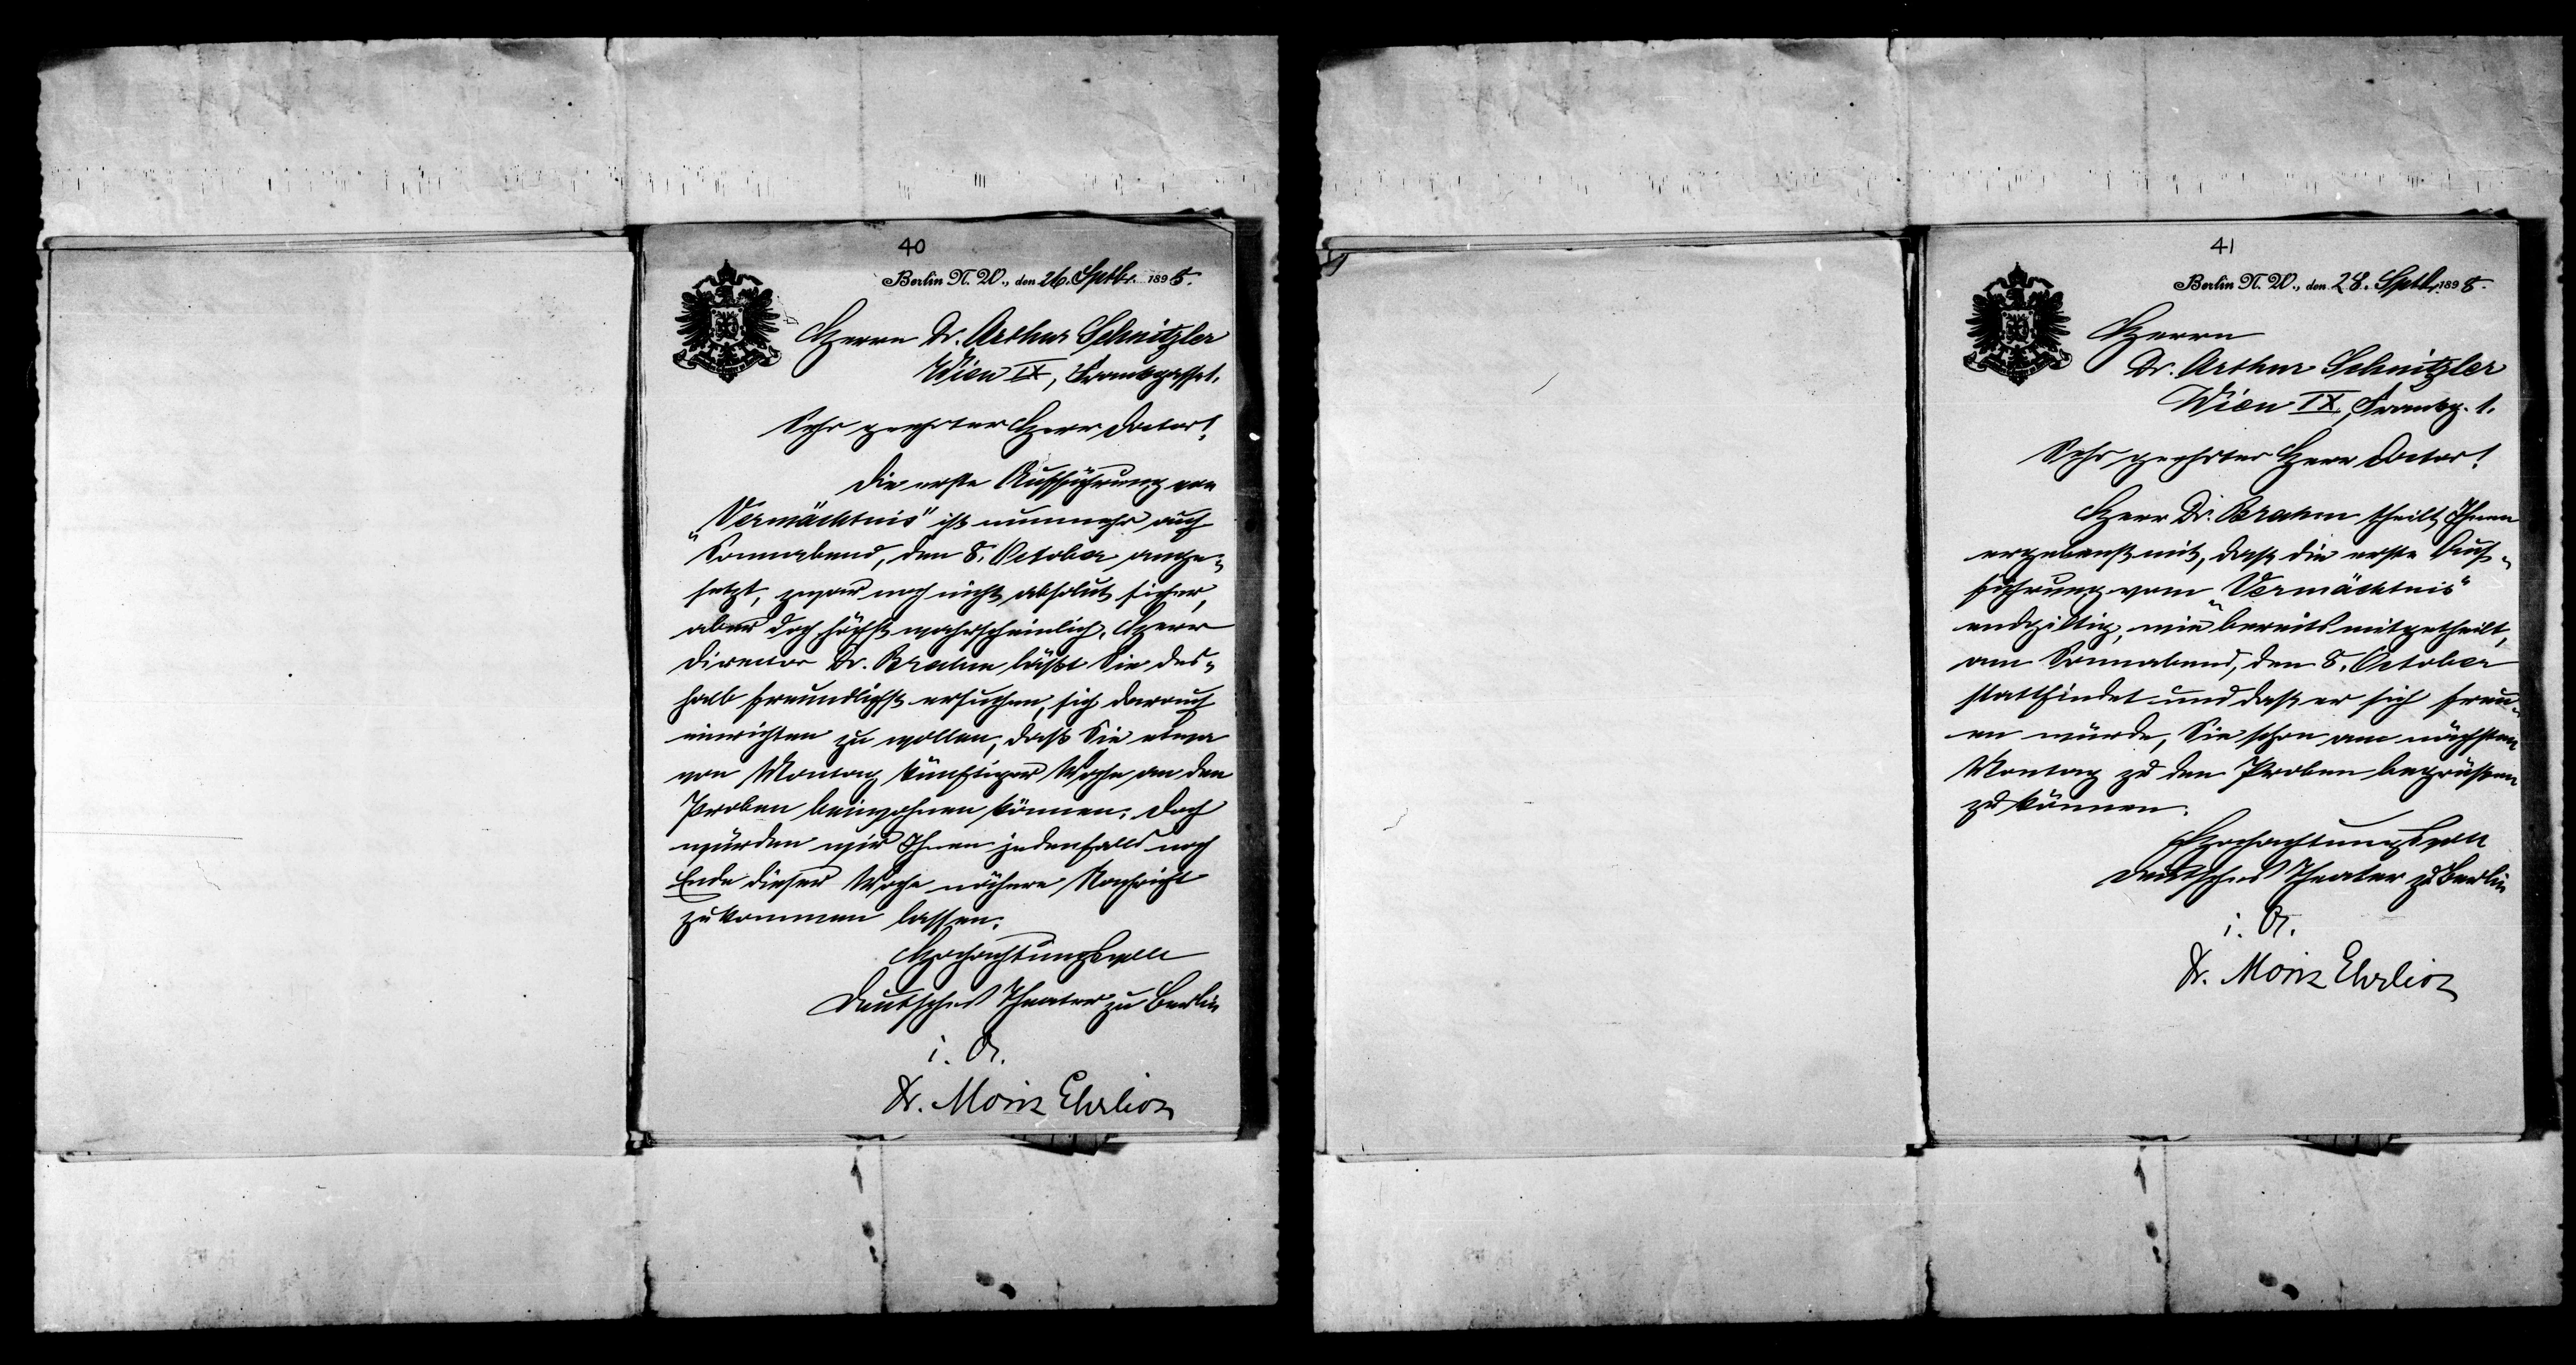 40
Berlin N. W., den 26. Septb. 1898.
Herrn Dr. Arthur Schnitzler
Wien IX, Frankgasse 1.
Sehr geehrter Herr Doctor!
Die erste Aufführung von
„Vermächtnis" ist nunmehr auf
Sonnabend, den 8. October ange-
setzt, zwar noch nicht absolut sicher,
aber doch höchst wahrscheinlich. Herr
Director Dr. Brahm läßt Sie des-
halb freundlichst ersuchen, sich darauf
einrichten zu wollen, daß Sie etwa
von Montag künftiger Woche an den
Proben beiwohnen können. Doch
würden wir Ihnen jedenfalls noch
Ende dieser Woche nähere Nachricht
zukommen lassen.
Hochachtungsvoll
Deutsches Theater zu Berlin
i. A.
Dr. Moriz Ehrlich
41
Berlin N. W., den 28. Septb. 1898.
Herrn
Dr. Arthur Schnitzler
Wien IX, Frankg. 1.
Sehr geehrter Herr Doctor!
Herr Dr. Brahm theilt Ihnen
ergebenst mit, daß die erste Auf-
führung vom „Vermächtnis"
endgiltig, wie bereits mitgetheilt,
am Sonnabend, den 8. October
stattfindet und daß er sich freu-
en würde, Sie schon am nächsten
Montag zu den Proben begrüßen
zu können.
Hochachtungsvoll
Deutsches Theater zu Berlin
i. A.
Dr. Moriz Ehrlich